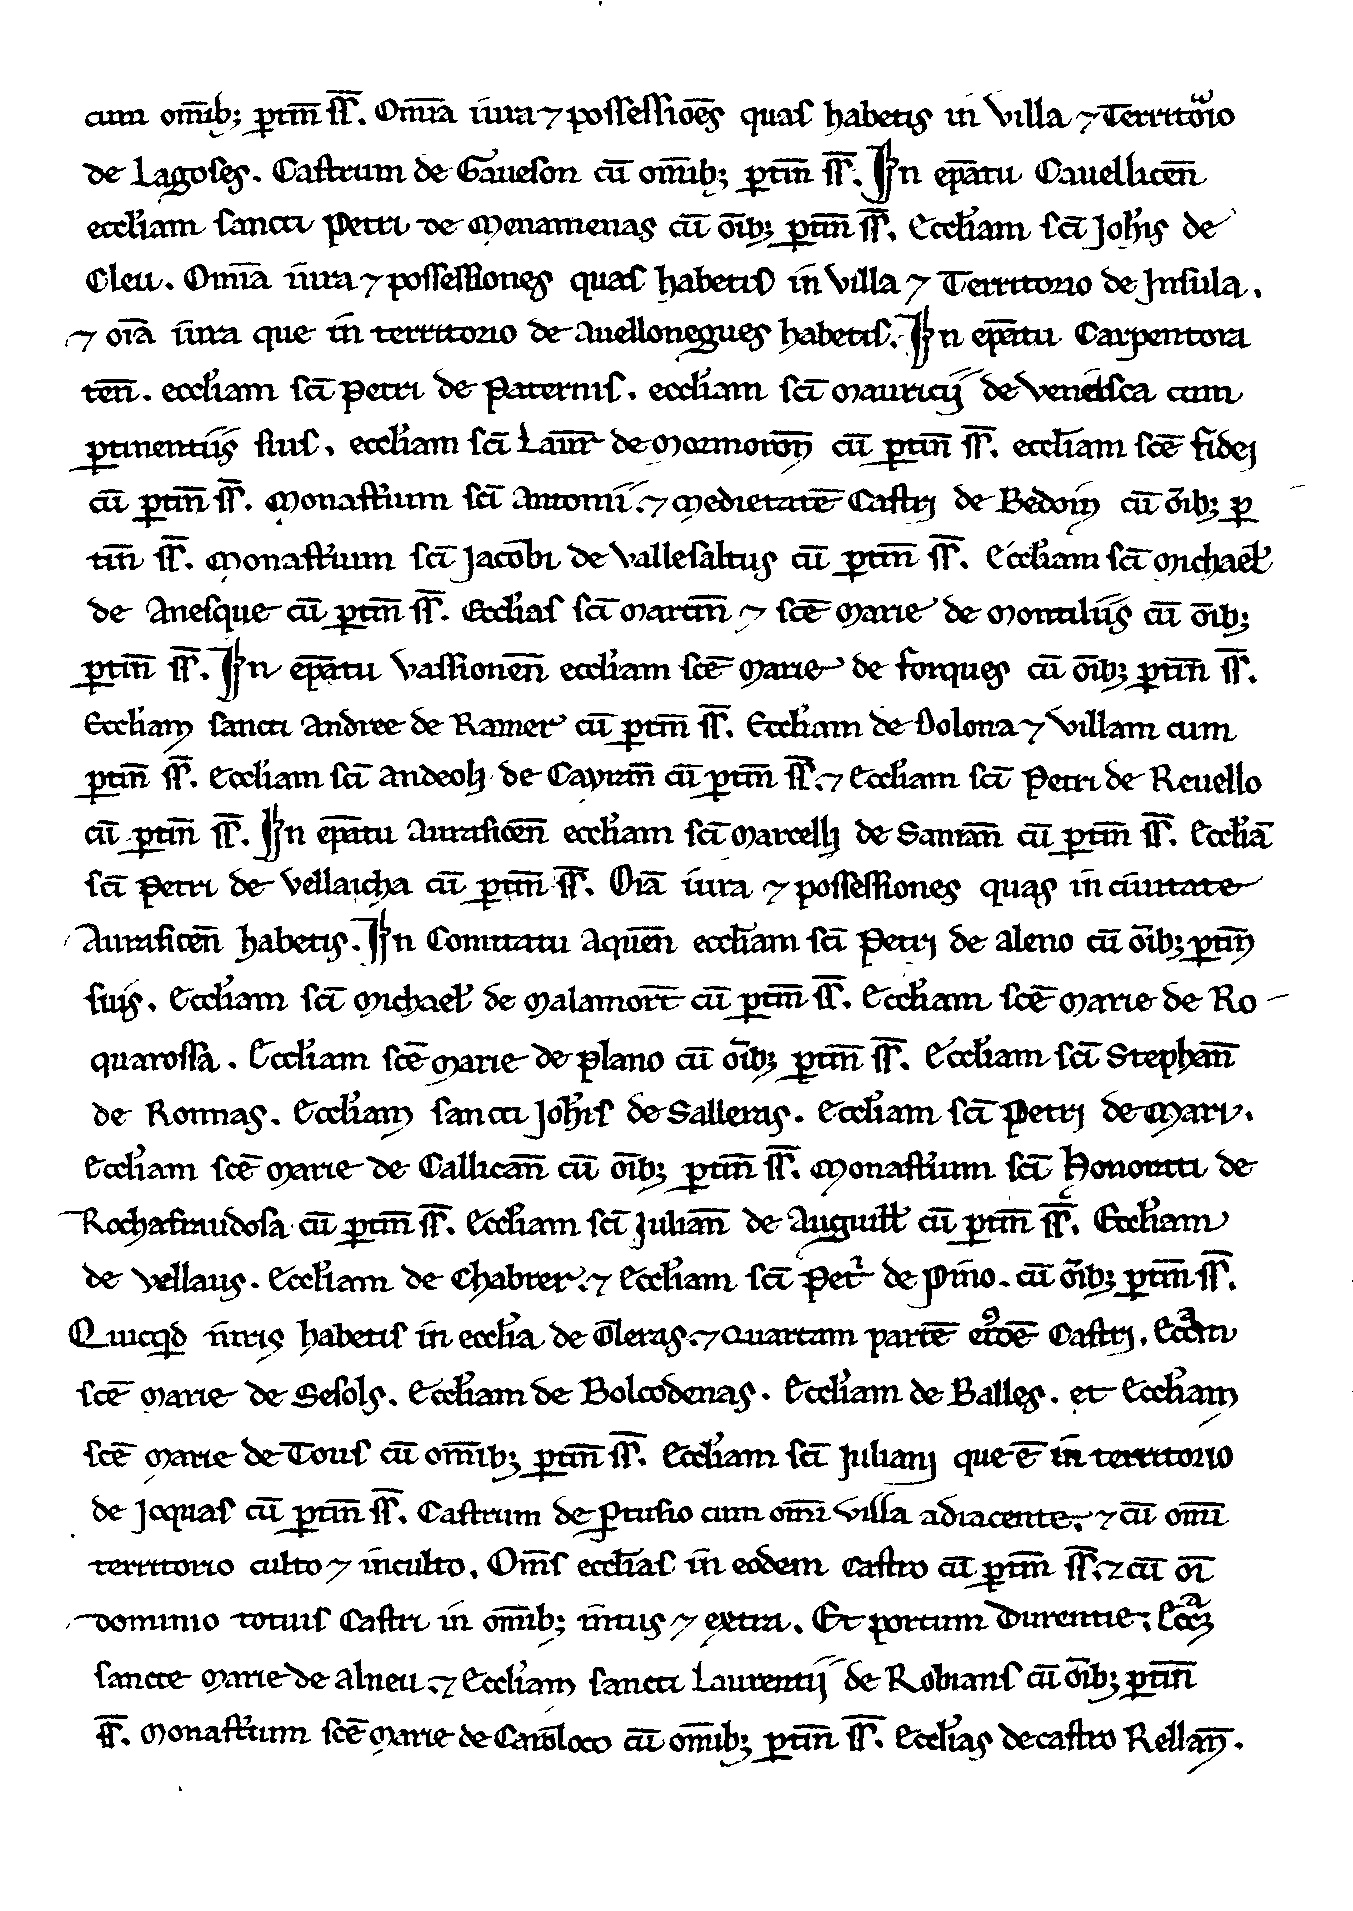 cum om̅ib; ꝑtin̅ ſſ̅. Om̅ia iura ⁊ poſſeſſio̅es quaſ habetis in Villa ⁊ Territorio
de Lagoſes. Caſtrum de Gaueſon cu̅ om̅ib; ꝑtin̅ ſſ̅. In ep̅atu Cauellicen̅
eccl̅iam ſancti Petri de Menamenas cu̅ o̅ib; ꝑtin̅ ſſ̅. Eccl̅iam ſci̅ Joh̅is de
Cleu. Om̅ia iura ⁊ poſſeſſiones quaſ habetis in Villa ⁊ Territorio de Inſula.
⁊ oi̅a iura que in territorio de Auellonegues habetiſ. In ep̅atu Carpentora
ten̅. eccl̅iam ſci̅ Petri de Paterniſ. eccl̅iam ſci̅ Mauricij de Venaſca cum
ꝑtinentiis ſuiſ. eccl̅iam ſci̅ Laur̅ de Mormoron̅ cu̅ ꝑtin̅ ſſ̅. eccl̅iam ſce̅ fidej
cu̅ ꝑtin̅ ſſ̅. Monaſt̅ium ſci̅ Antonii. ⁊ Medietate̅ Caſtrj de Bedoin cu̅ o̅ib; ꝑ
tin̅ ſſ̅. Monaſt̅ium ſci̅ Jacobi de Valleſaltus cu̅ ꝑtin̅ ſſ̅. Eccl̅iam ſci̅ Michael̅
de Aneſque cu̅ ꝑtin̅ ſſ̅. Eccl̅iaſ ſci̅ Martin̅ ⁊ ſce̅ Marie de Montiliis cu̅ o̅ib;
ꝑtin̅ ſſ̅. In ep̅atu Vaſſionen̅ eccl̅iam ſce̅ Marie de forques cu̅ o̅ib; ꝑtin̅ ſſ̅.
Eccl̅iam ſancti Andree de Ramer cu̅ ꝑtin̅ ſſ̅. Eccl̅iam de Dolona ⁊ Villam cum
ꝑtin̅ ſſ̅. Eccl̅iam ſci̅ Andeolj de Cayran̅ cu̅ ꝑtin̅ ſſ̅. ⁊ Eccl̅iam ſci̅ Petri de Reuello
cu̅ ꝑtin̅ ſſ̅. In ep̅atu Auraſicen̅ eccl̅iam ſci̅ Marcellj de Santan̅ cu̅ ꝑtin̅ ſſ̅. Eccl̅ia̅
ſci̅ Petri de Vellaicha cu̅ ꝑtin̅ ſſ̅. Oi̅a iura ⁊ poſſeſſiones quas in ciuitate
Auraſicen̅ habetis. In Comitatu Aquen̅ eccl̅iam ſci̅ Petrj de aleno cu̅ o̅ib; ꝑtin̅
ſuis. Eccl̅iam ſci̅ Michael̅ de Malamort̅ cu̅ ꝑtin̅ ſſ̅. Eccl̅iam ſce̅ Marie de Ro
quaroſſa. Eccl̅iam ſce̅ Marie de plano cu̅ o̅ib; ꝑtin̅ ſſ̅. Eccl̅iam ſci̅ Stephan̅
de Ronnas. Eccl̅iam ſancti Joh̅iſ de Salleras. Eccl̅iam ſci̅ Petrj de Mari.
Eccl̅iam ſce̅ Marie de Callican̅ cu̅ o̅ib; ꝑtin̅ ſſ̅. Monaſt̅ium ſci̅ Honorati de
Rochafinudoſa cu̅ ꝑtin̅ ſſ̅. Eccl̅iam ſci̅ Julian̅ de Auguill̅ cu̅ ꝑtin̅ ſſ̅. Eccl̅iam
de Vellaus. Eccl̅iam de Chabrer. ⁊ Eccl̅iam ſci̅ Pet̅ de Pino. cu̅ o̅ib; ꝑtin̅ ſſ̅.
Quicq̅d iuris habetiſ in eccl̅ia de Oleras. ⁊ Quartam parte̅ eiꝰde̅ Caſtrj. Ecc̅am
ſce̅ Marie de Seſols. Eccl̅iam de Bolcodenas. Eccl̅iam de Balles. et Eccl̅iam
ſce̅ Marie de Touſ cu̅ om̅ib; ꝑtin̅ ſſ̅. Eccl̅iam ſci̅ Julianj que e̅ in territorio
de Joquaſ cu̅ ꝑtin̅ ſſ̅. Caſtrum de Ꝑtuſio cum om̅i villa adiacente. ⁊ cu̅ om̅i
territorio culto ⁊ inculto. Om̅s eccl̅iaſ in eodem Caſtro cu̅ ꝑtin̅ ſſ̅. ⁊ cu̅ oi̅
dominio totiuſ Caſtri in om̅ib; intus ⁊ extra. Et portum Durentie. Ecc̅a̅
ſancte Marie de alneu. ⁊ Eccl̅iam ſancti Laurentij de Robianſ cu̅ o̅ib; ꝑtin̅
ſſ̅. Monaſt̅ium ſce̅ Marie de Caroloco cu̅ om̅ib; ꝑtin̅ ſſ̅. Eccl̅ias de caſtro Rellan̅.